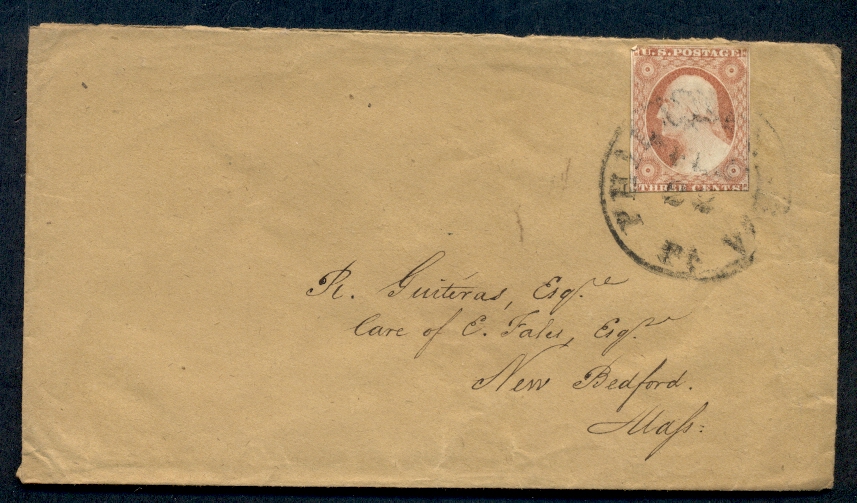 U.S.POSTAGE
THREE CENTS
PHIL
22
Pa
R. Guitéras, Esq.re
Care of E. Fales, Esq.re
New Bedford.
Maſs: